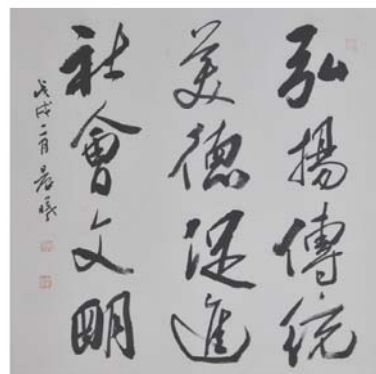 弘揚傳統
美德促進
社會文明
戊戌二月晨曦